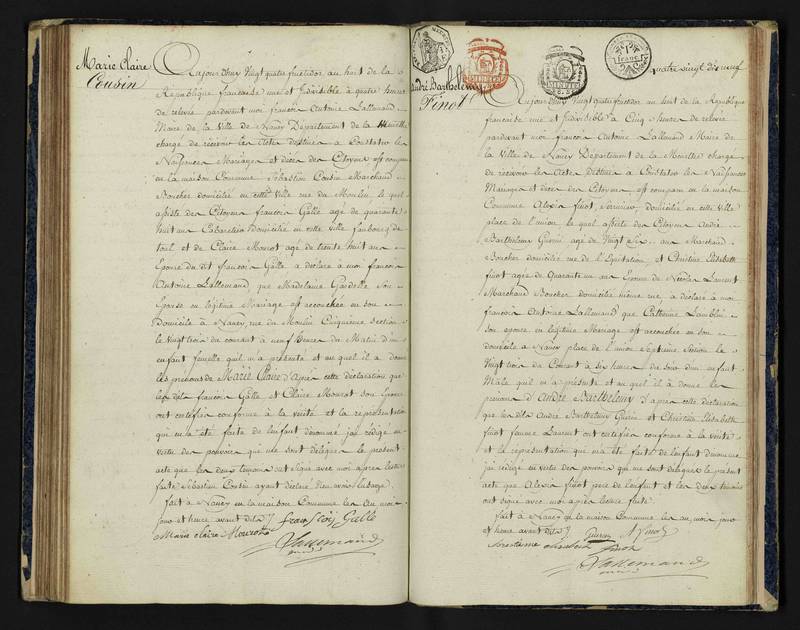 Marie Claire
Cousin
Aujourd'huy Vingt quatre fructidor an huit de la
Republique francaise une et Indivisible à quatre heures
de relevée pardevant moi françois Antoine Lallemand
Maire de la Ville de Nancy Département de la Meurthe
chargé de recevoir les Actes destinés à Constater les
Naissances Mariages et décès des Citoyens est comparu
en la maison Commune Sébastien Cousin Marchand
Boucher domicilié en cette Ville rue du Moulin, lequel
assisté des Citoyens françois Gallé agé de quarante
huit ans Cabaretier domicilié en cette ville faubourg de
toul et de Claire Mourot agée de trente huit ans
Epouse du dit françois Gallé a déclaré à moi françois
Antoine Lallemand, que Madelaine Gardelle son
Epouse en légitime Mariage est accouchée en son
domicile à Nancy, rue du Moulin Cinquieme section
le vingt trois du courant à neuf heures du Matin d'un
enfant femelle qu'il m'a présenté et au quel il a donné
les prénoms de Marie Claire d'après cette déclaration que
les dits françois Gallé et Claire Mourot son Epouse
ont certifié conforme à la vérité et la représentation
qui m'a été faite de l'enfant dénommé j'ai rédigé en
vertu des pouvoirs qui me sont délégués le présent
acte que les deux témoins ont signé avec moi après lecture
faite Sébastien Cousin ayant déclaré n'en avoir l'usage.
fait à Nancy en la maison Commune les an mois
jour et heure avant dits françois Gallé
Marie claire Mourot
Lallemand
quatre vingt dix neuf
André Barthelemy
Finot
Aujourd'huy Vingt quatre fructidor an huit de la République
francaise une et Indivisible à Cinq heures de relevée
pardevant moi françois Antoine Lallemand Maire de
la Ville de Nancy Département de la Meurthe chargé
de recevoir les Actes destinés à Constater les Naissances
Mariages et décès des Citoyens est comparu en la maison
Commune Alexis finot, domicilié en cette Ville
place de l'union, lequel assisté des Citoyens André
Barthelemy Guerin agé de Vingt Six ans Marchand
Boucher domicilié rue de et Christine Elisabeth
finot agée de Quarante un ans Epouse de Nicolas Laurent
Marchand Boucher domicilié même rue, a déclaré à moi
françois Antoine Lallemand que Catherine Lamblin
son epouse en légitime Mariage est accouchée en son
domicile à Nancy place de l'union Septieme Section le
Vingt trois du Courant à six heures du soir d'un enfant
Male qu'il m'a présenté et au quel il a donné les
prénoms d'André Barthelemy d'après cette déclaration
que les dits André Barthelemy Guerin et Christine Elisabeth
finot femme Laurent ont certifié conforme à la vérité
et la représentation qui m'a été faite de l'enfant dénommé
j'ai rédigé en vertu des pouvoirs qui me sont délégués le présent
acte que Alexis finot père de l'enfant et les deux témoins
ont signé avec moi après lecture faite.
fait à Nancy en la maison Commune les an, mois, jour
et heure avant dits Guerin A finot
finot
Lallemand